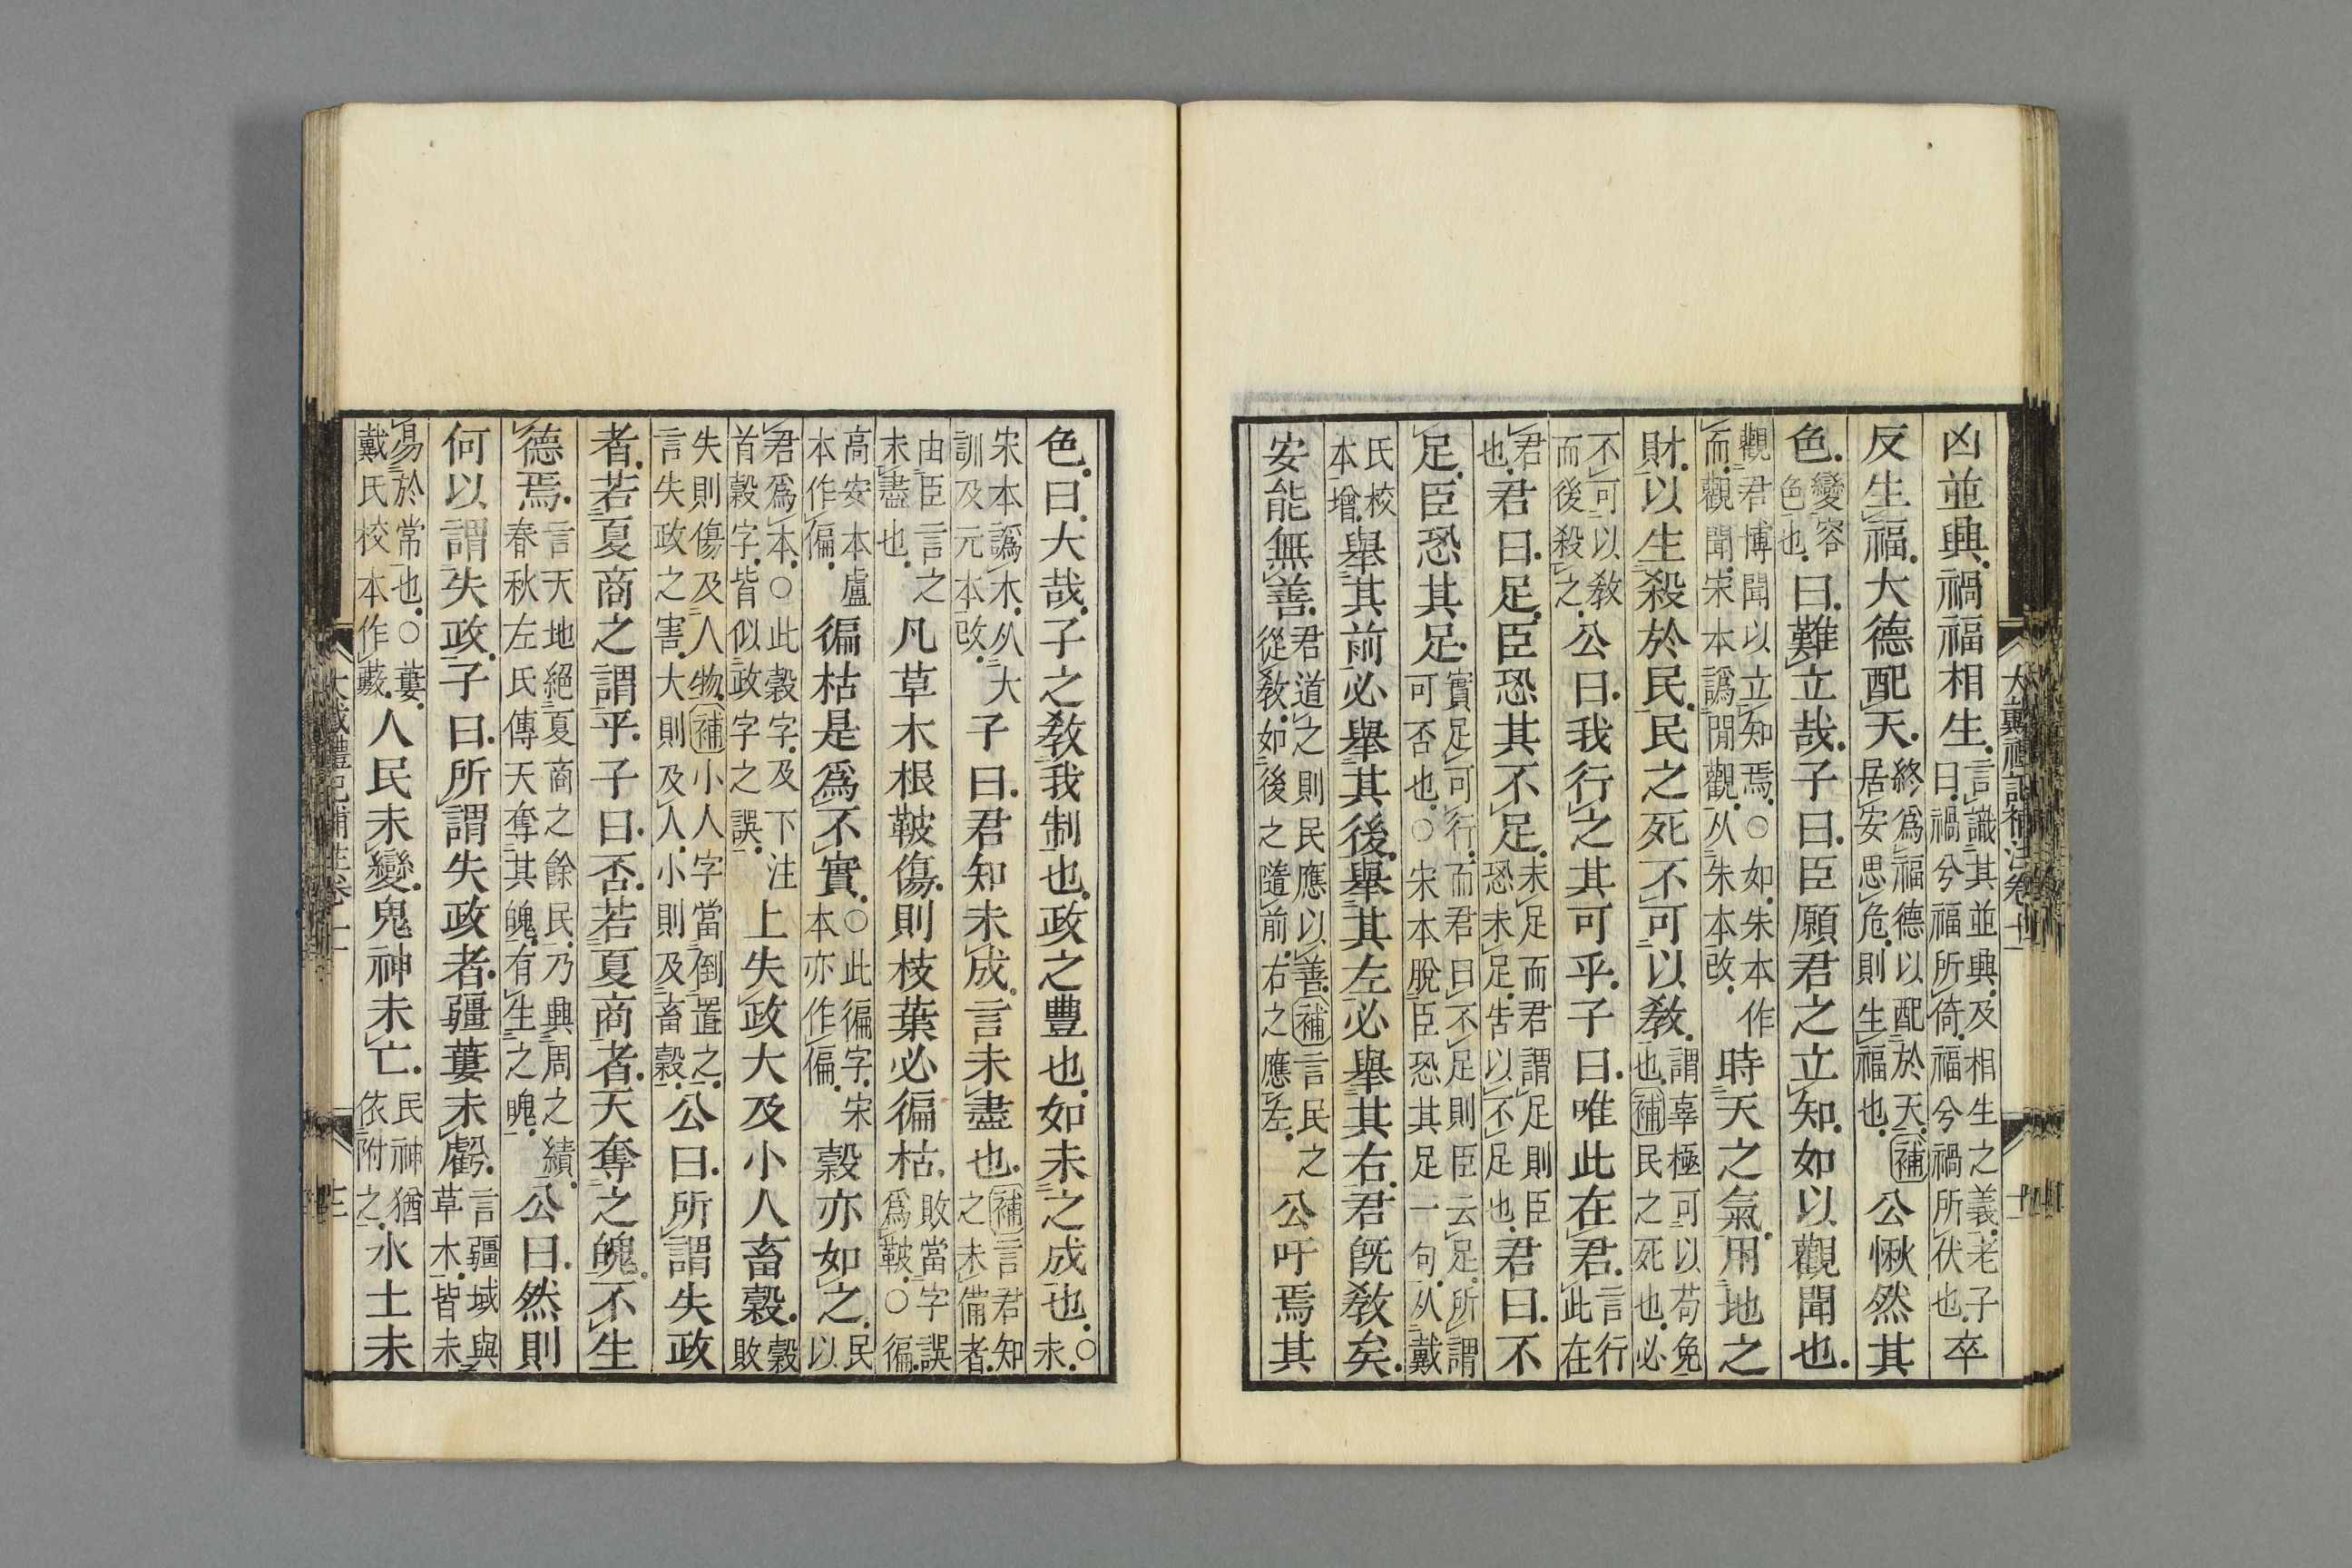 凶並興禍福相生言識其並興及相生之義老子曰禍兮福所倚福兮禍所伏也卒
反生福大德配天終爲福德以配於天補居安思危則生福也公愀然其
色變容色也曰難立哉子曰臣願君之立知如以觀聞也
觀君博聞以立知焉○如朱本作而觀聞宋本譌閒觀从朱本改時天之氣用地之
財以生殺於民民之死不可以敎謂辜極可以苟免也補民之死也必
不可以敎而後殺之公曰我行之其可乎子曰唯此在君言行此在
君也君曰足臣恐其不足未足而君謂足則臣恐未足吿以不足也君曰不
足臣恐其足實足可行而君曰不足則臣云足所謂可否也○宋本脫臣恐其足一句从戴
氏校本增舉其前必舉其後舉其左必舉其右君旣敎矣
安能無善君道之則民應以善補言民之從敎如後之隨前右之應左公吁焉其
色曰大哉子之敎我制也政之豐也如未之成也○未
宋本譌木从大訓及元本改子曰君知未成言未盡也補言君知之未備者
由臣言之未盡也凡草木根鞁傷則枝葉必徧枯敗當字誤爲鞁○徧
高安本盧本作偏徧枯是爲不實○此徧字宋本亦作偏穀亦如之民以
君爲本○此穀字及下注首穀字皆似政字之誤上失政大及小人畜穀穀敗
失則傷及人物補小人字當倒置之言失政之害大則及人小則及畜穀公曰所謂失政
者若夏商之謂乎子曰否若夏商者天奪之魄不生
德焉言天地絕夏商之餘民乃興周之績春秋左氏傳天奪其魄有生之魄公曰然則
何以謂失政子曰所謂失政者疆蔞未虧言疆域與草木皆未
易於常也○蔞戴氏校本作藙人民未變鬼神未亡民神猶依附之水土未